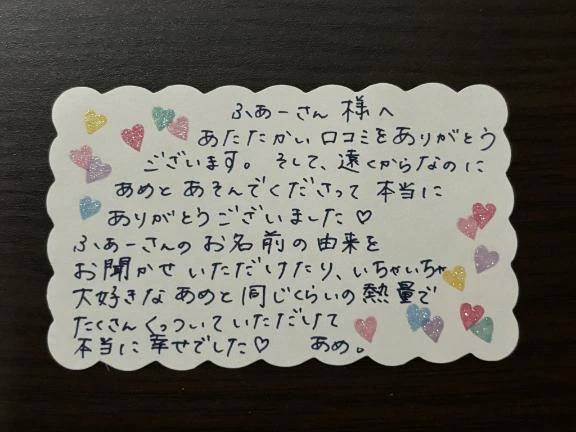 ふあーさん 様へ
あたたかい口コミをありがとう
ございます。そして、遠くからなのに
あめとあそんでくださって 本当に
ありがとうございました♡
ふあーさんのお名前の由来を
お聞かせいただけたり、いちゃいちゃ
大好きなあめと同じくらいの熱量で
たくさんくっついていただけて
本当に幸せでした♡ あめ。